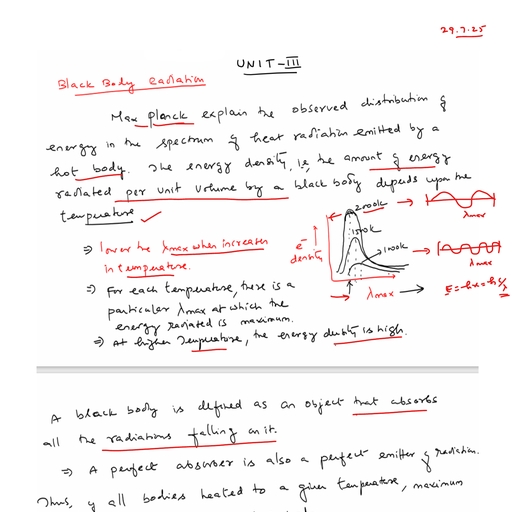 29.7.25
UNIT-III
Black Body radiation
Max planck explain the observed distribution of
energy in the spectrum of heat radiation emitted by a
hot body. The energy density, i.e, the amount of energy
radiated per unit volume by a black body depends upon the
temperature
⇒ lower the λmax when increases
in temperature.
⇒ For each temperature, there is a
particular λmax at which the
energy radiated is maximum.
⇒ At higher Temperature, the energy density is high.
e-
density
2000k
1500k
1000k
λmax
λmax
λmax
A black body is defined as an object that absorbs
all the radiations falling on it.
⇒ A perfect absorber is also a perfect emitter of radiation.
Thus, if all bodies heated to a given temperature, maximum